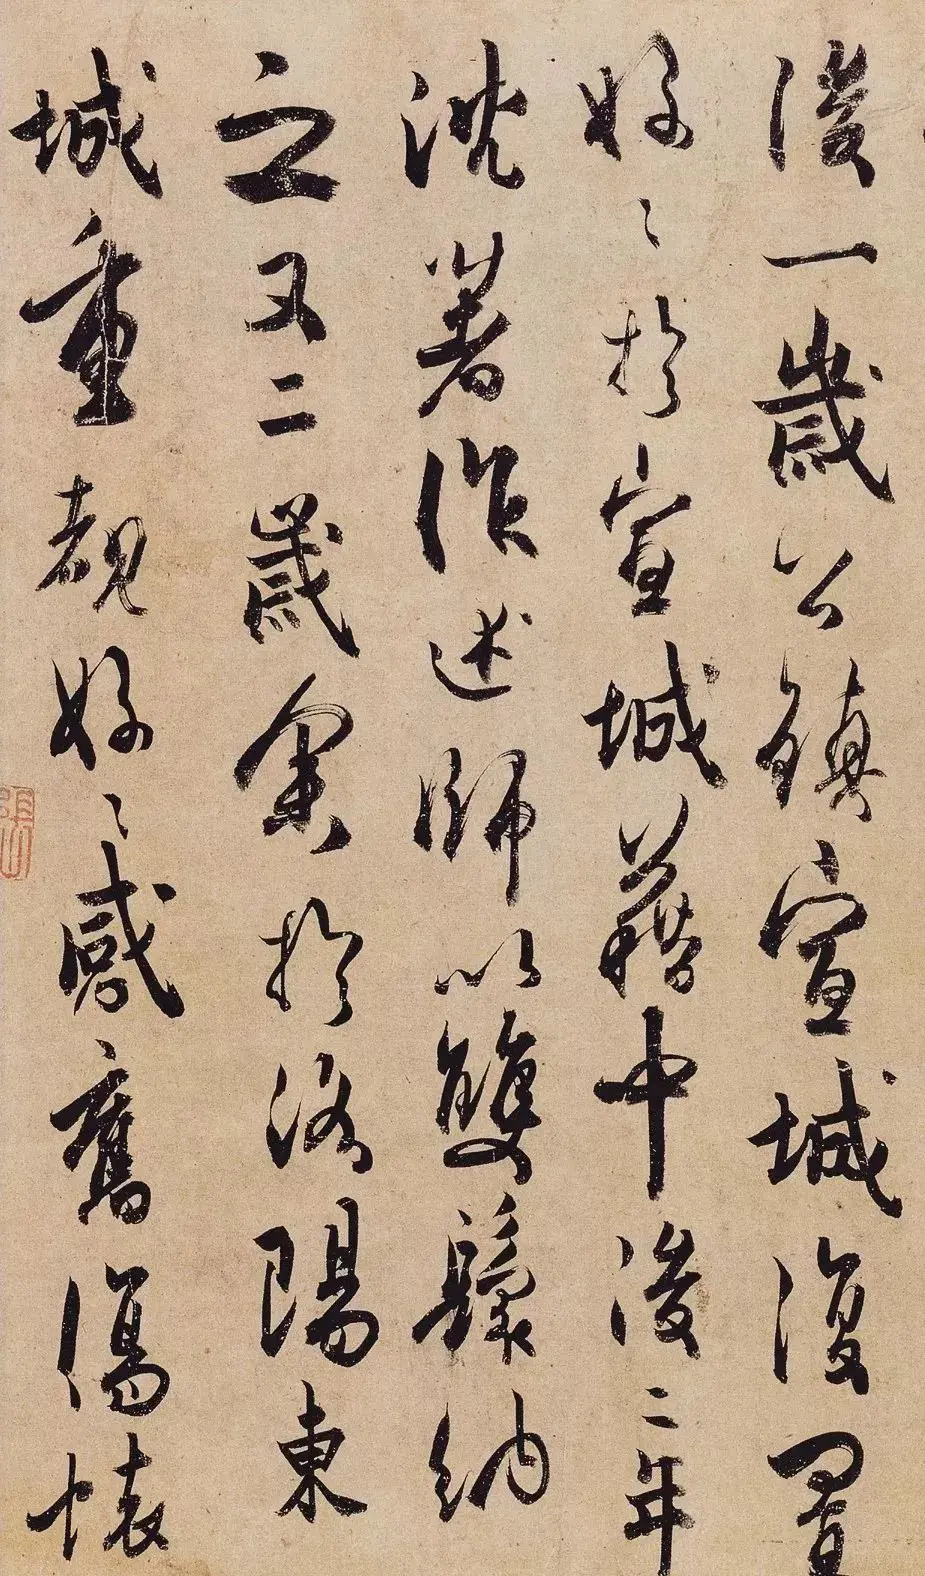 後一歲公鎮宣城復置
好〻於宣城籍中後二年
沈著作述師以雙鬟納
之又二歲余於洛陽東
城重覩好〻感舊傷懷